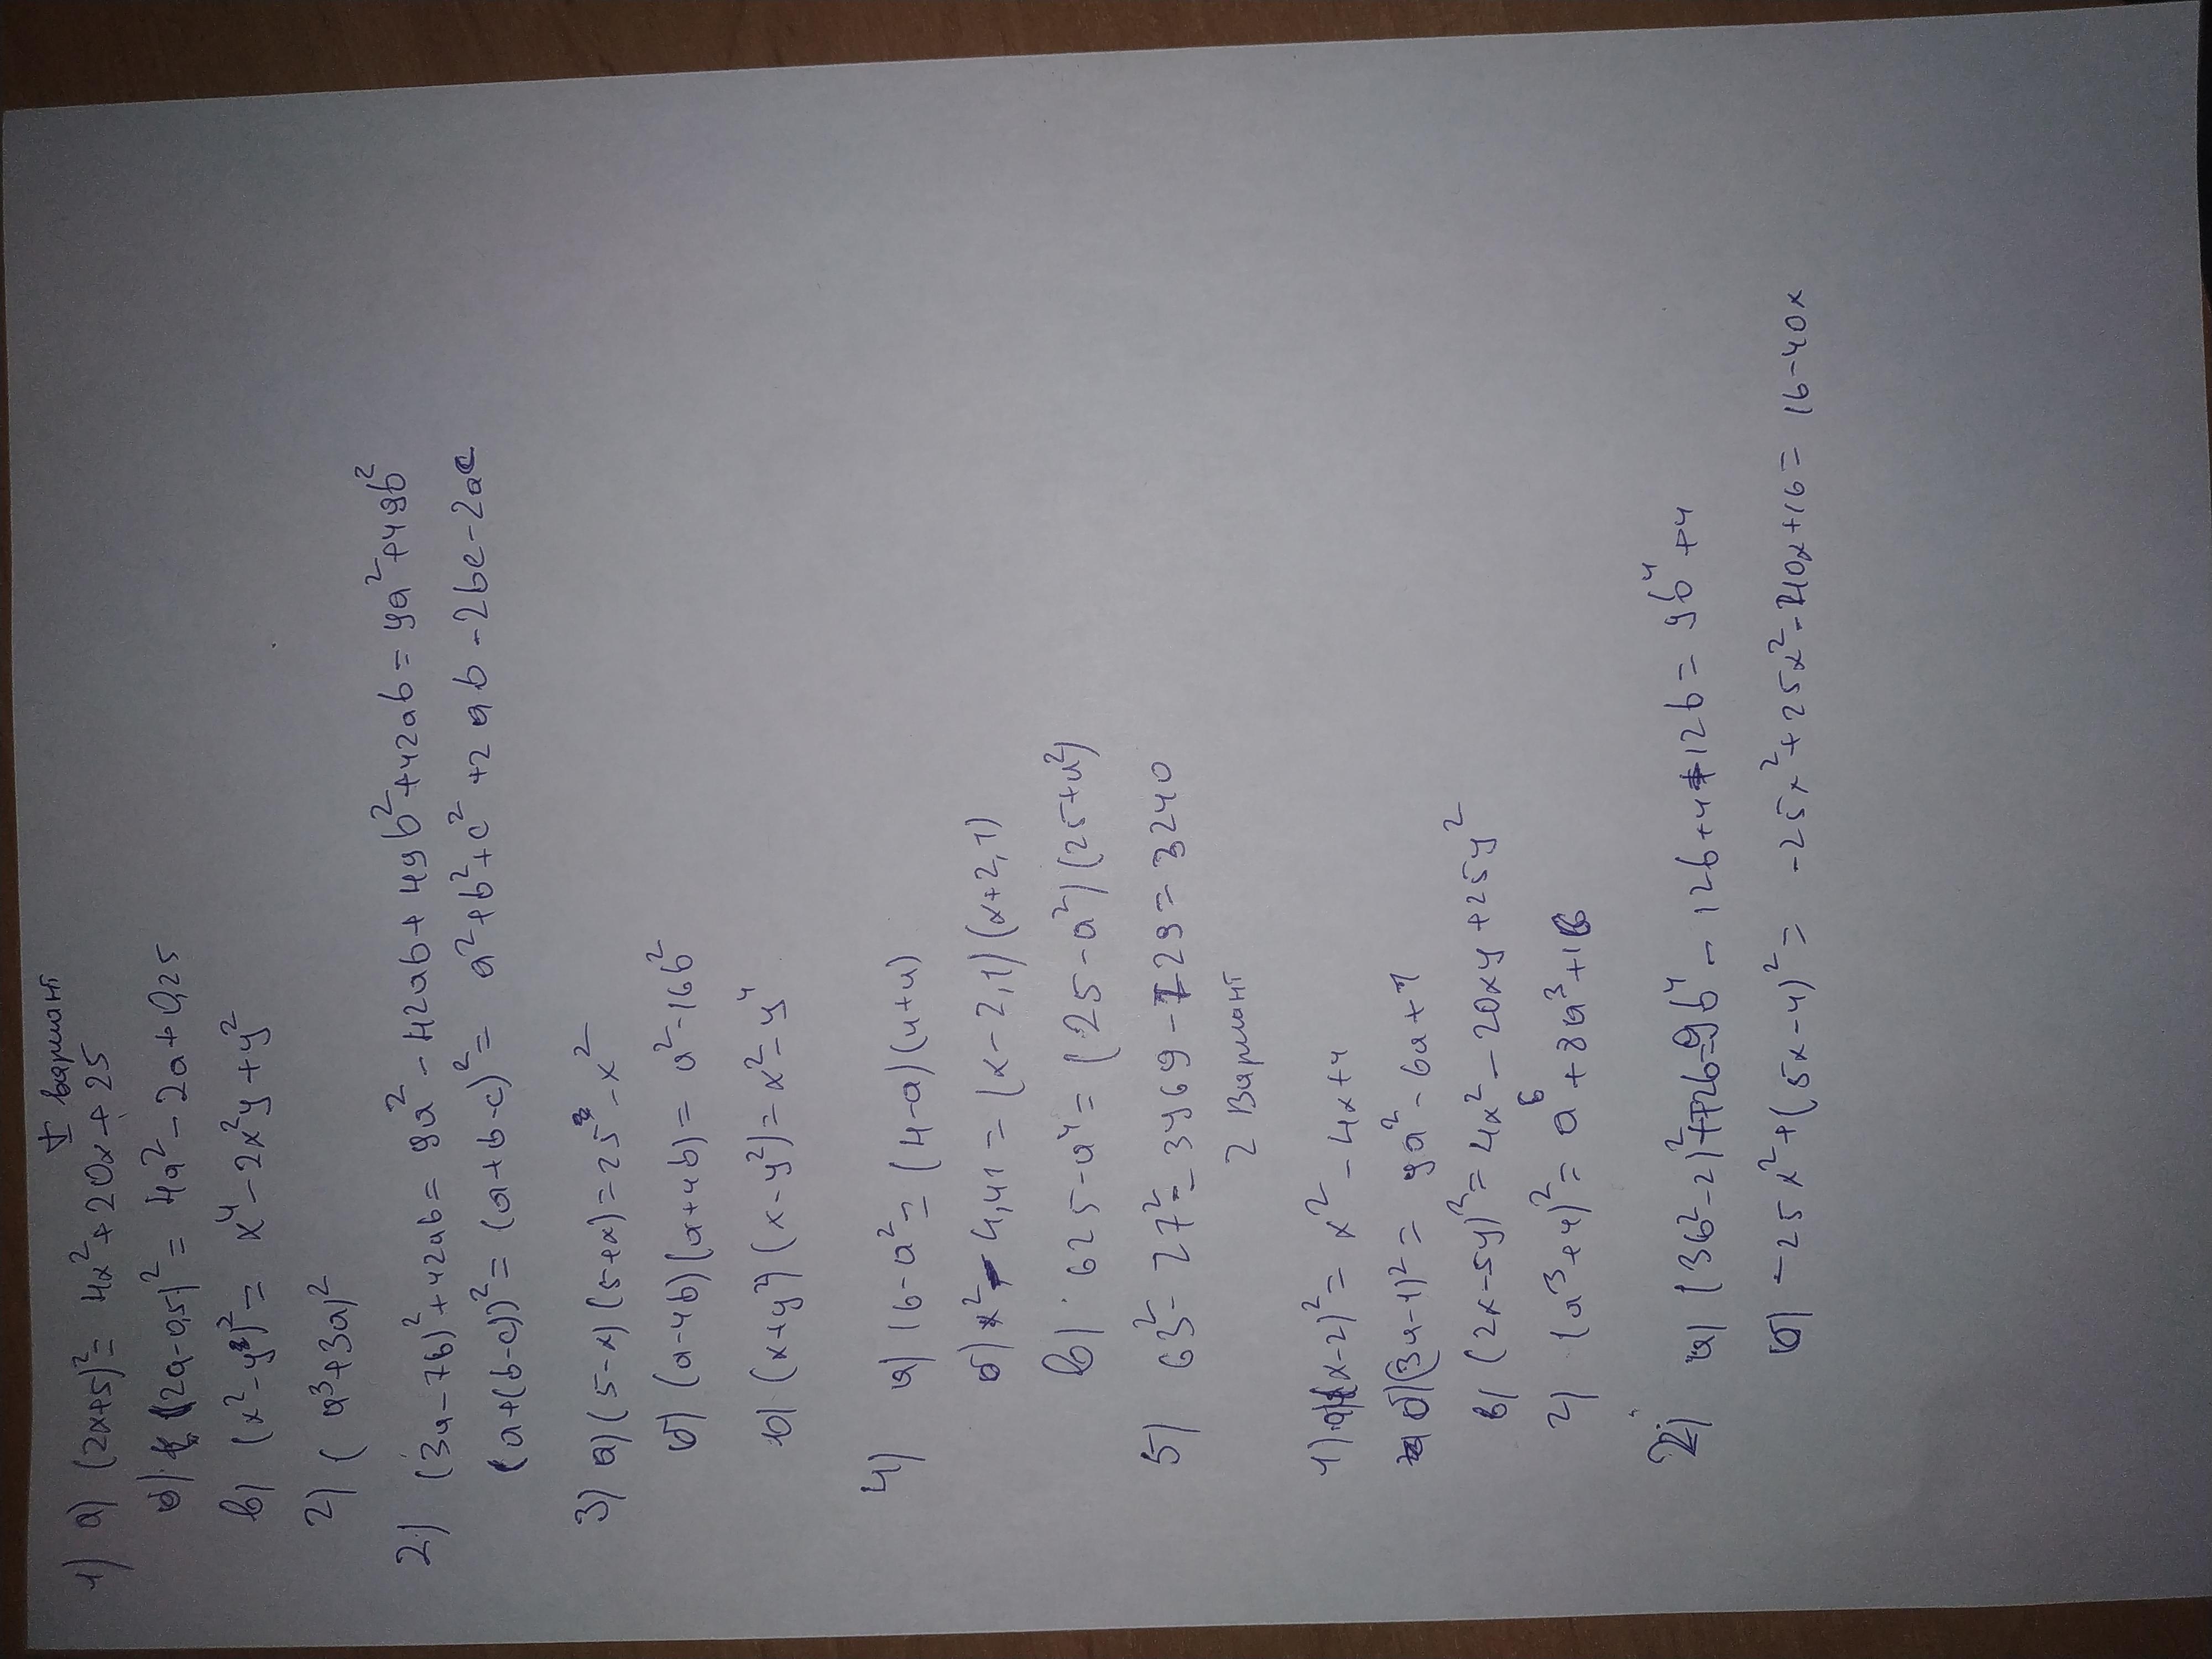 I вариант
1) а) (2x+5)² = 4x²+20x+25
б) (2a-0,5)² = 4a²-2a+0,25
в) (x²-y)² = x⁴-2x²y+y²
г) (a³+3a)²
2) (3a-7b)²+42ab = 9a²-42ab+49b²+42ab = 9a²+49b²
(a+(b-c))² = (a+b-c)² = a²+b²+c²+2ab-2bc-2ac
3) а) (5-x)(5+x) = 25-x²
б) (a-4b)(a+4b) = a²-16b²
в) (x+y²)(x-y²) = x²-y⁴
4) а) 16-a² = (4-a)(4+a)
б) x²-4,41 = (x-2,1)(x+2,1)
в) 625-a⁴ = (25-a²)(25+a²)
5) 63²-27² = 3969-729 = 3240
2 Вариант
1) а) (x-2)² = x²-4x+4
б) (3a-1)² = 9a²-6a+1
в) (2x-5y)² = 4x²-20xy+25y²
г) (a³+4)² = a⁶+8a³+16
2) а) (3b²-2)²+12b = 9b⁴-12b+4+12b = 9b⁴+4
б) -25x²+(5x-4)² = -25x²+25x²-40x+16 = 16-40x